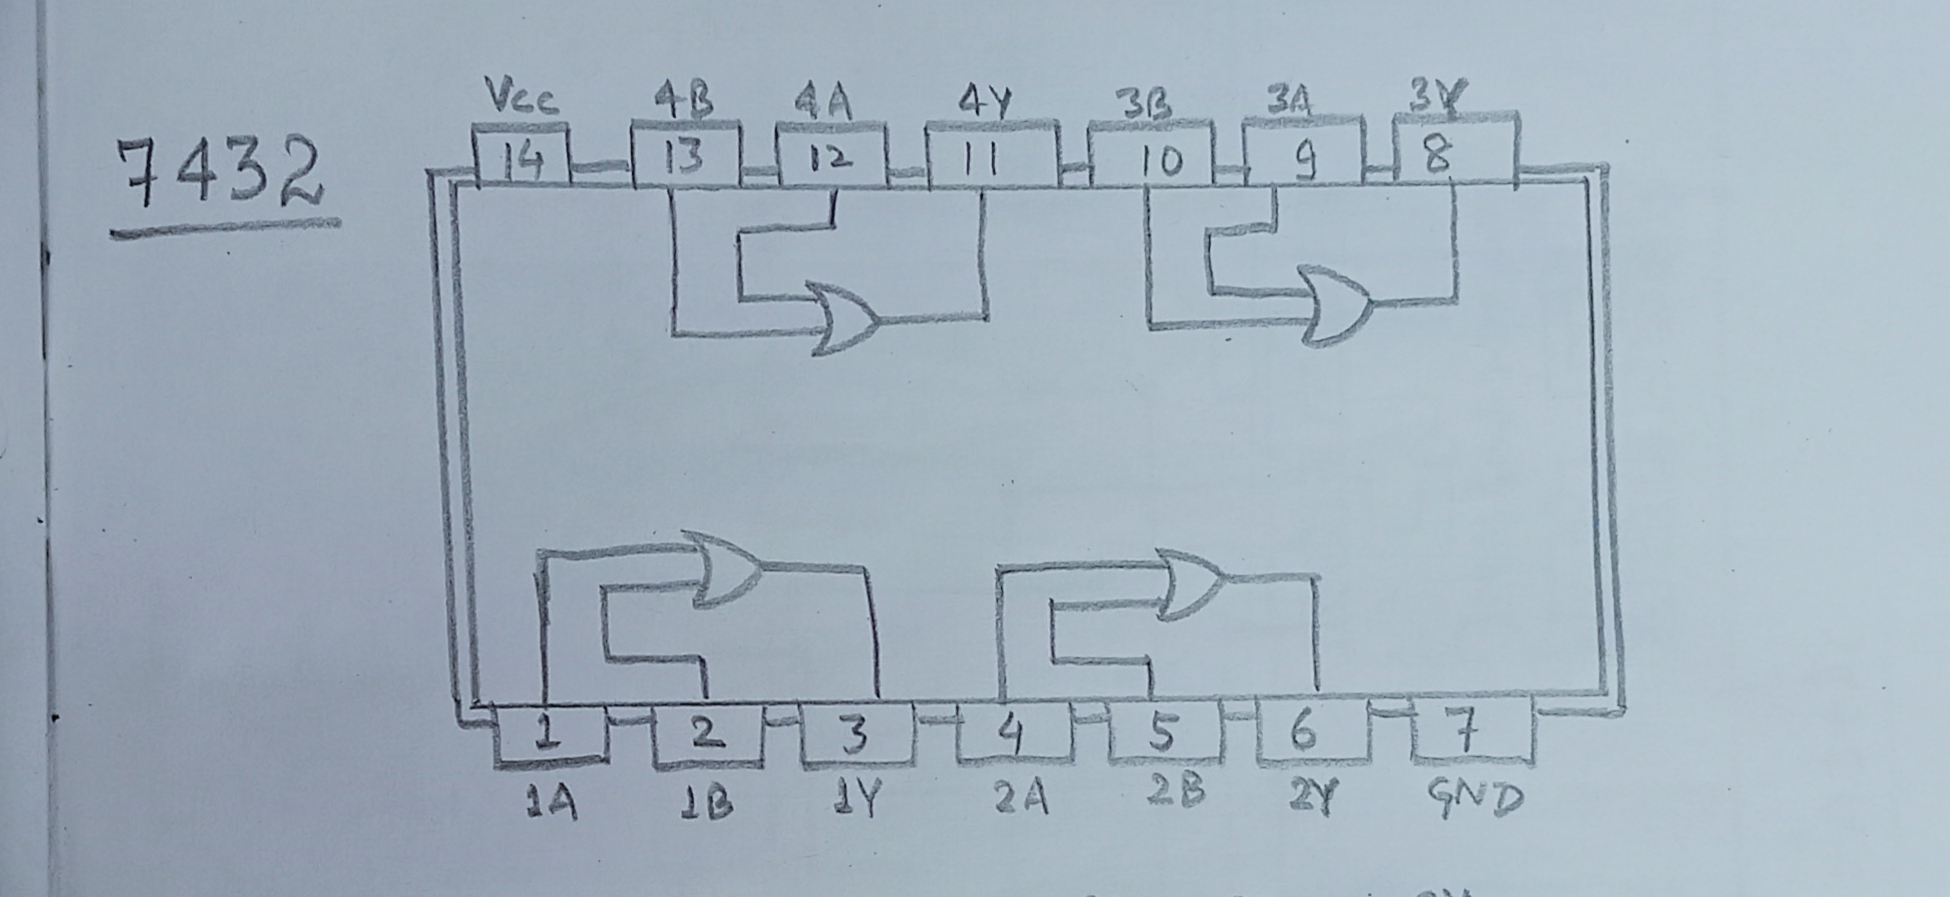 7432
Vcc 4B 4A 4Y 3B 3A 3Y
14 13 12 11 10 9 8
1 2 3 4 5 6 7
1A 1B 1Y 2A 2B 2Y GND